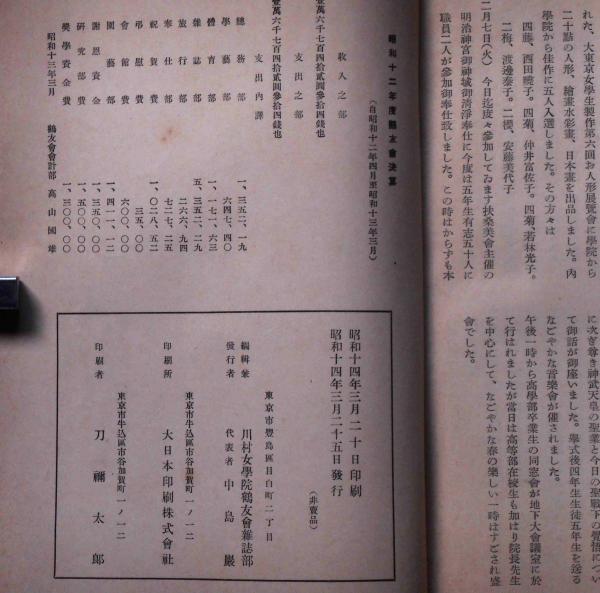 れた、大東京女學生製作第六回お人形展覽會に學院から
二十點の人形、繪畫水彩畫、日本畫を出品しました。內
學院から佳作に五人入選しました。その方々は
四藤、西田曉子。四菊、仲井富佐子。四菊、若林光子。
二梅、渡邊泰子。二櫻、安藤美代子
二月七日(火) 今日迄度々參加してゐます扶桑美會主催の
明治神宮御神域御淸淨奉仕に今度は五年生有志五十人に
職員二人が參加御奉仕致しました。この時はからずも本
に次ぎ尊き神武天皇の聖業と今日の聖戰下の覺悟につい
て御話が御座いました。擧式後四年生生徒五年生を送る
なごやかな音樂會が催されました。
午後一時から高學部卒業生の同窓會が地下大會議室に於
て行はれましたが當日は高等部在校生も加はり院長先生
を中心にして、なごやかな春の樂しい一時はすごされ盛
會でした。
昭和十二年度鶴友會決算
(自昭和十二年四月至昭和十三年三月)
收入之部
壹萬六千七百四拾貳圓參拾四錢也
支出之部
壹萬六千七百四拾貳圓參拾四錢也
支出內譯
總務部 一、三五二、一九
學藝部 六四七、四〇
體育部 一、一七一、六三
雜誌部 五、三五二、二九
旅行部 二六六、九四
奉仕部 七二七、二五
祝賀費 一、〇二八、五二
弔慰費 三五、〇〇
會館費 六〇〇、〇〇
園藝部 一、四一一、一二
謝恩資金 一、三五〇、〇〇
硏究部費 一、五〇〇、〇〇
奬學資金費 一、三〇〇、〇〇
昭和十三年三月
鶴友會會計部 高山國雄
昭和十四年三月二十日印刷
昭和十四年三月二十五日發行
(非賣品)
東京市豐島區目白町二丁目
編輯兼
發行者
川村女學院鶴友會雜誌部
代表者 中島巖
東京市牛込區市谷加賀町一ノ一二
印刷所 大日本印刷株式會社
東京市牛込區市谷加賀町一ノ一二
印刷者 刀禰太郞